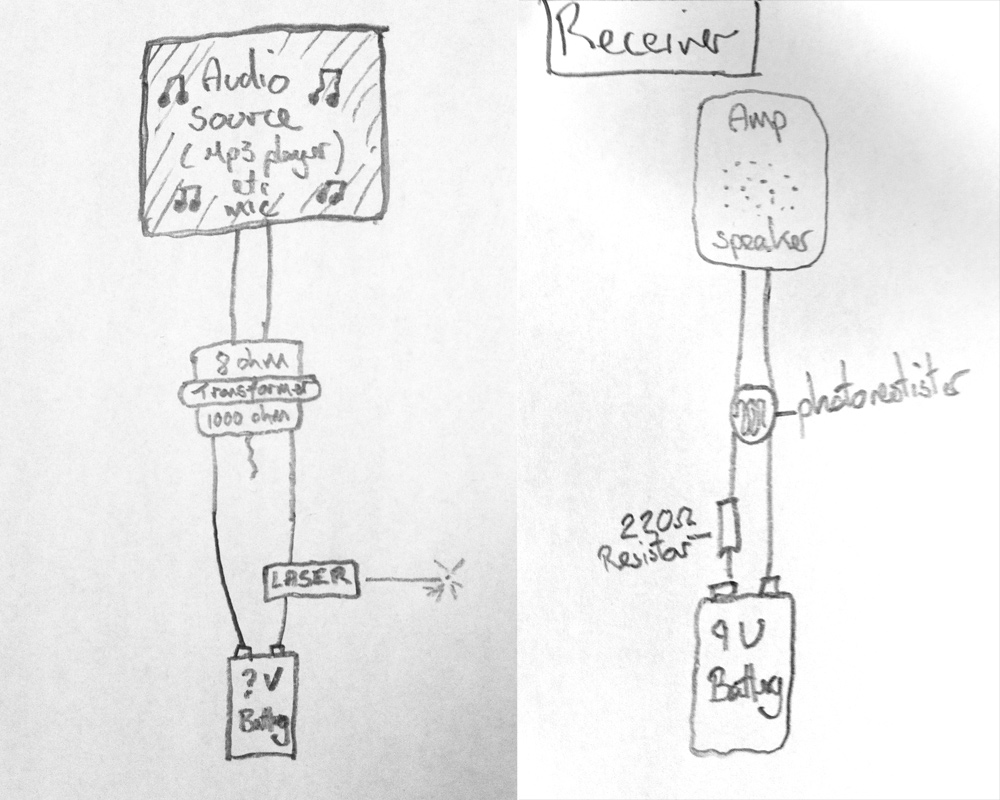 Audio
Source
(Mp3 player)
etc
mic
8 ohm
Transformer
1000 ohm
LASER
?V
Battery
Receiver
Amp
speaker
photoresistor
220Ω
Resistor
9V
Battery